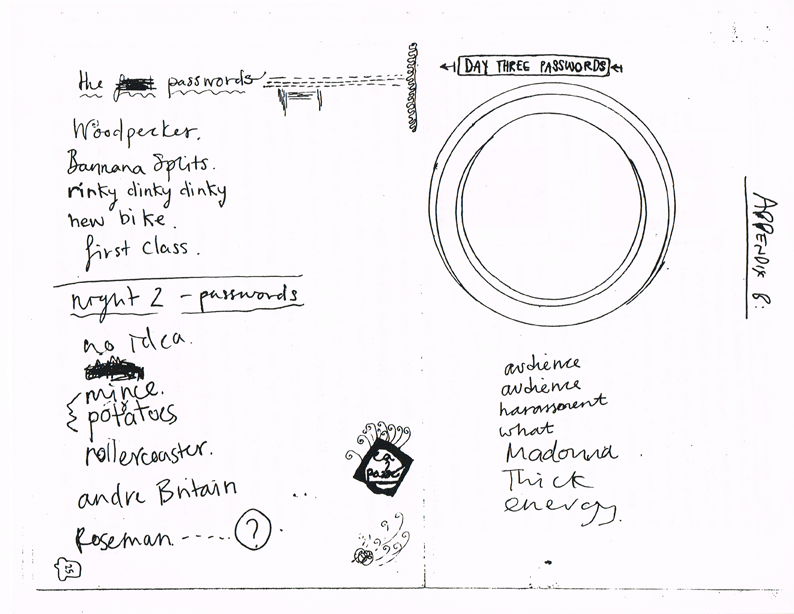 the passwords
Woodpecker.
Bannana Splits.
rinky dinky dinky
new bike.
first class.
night 2 - passwords
no idea.
mince.
potatoes
rollercoaster.
andre Britain ...
Roseman ----- ? .
25
DAY THREE PASSWORDS
audience
audience
harassment
what
Madonna.
Thick
energy.
APPENDIX B: